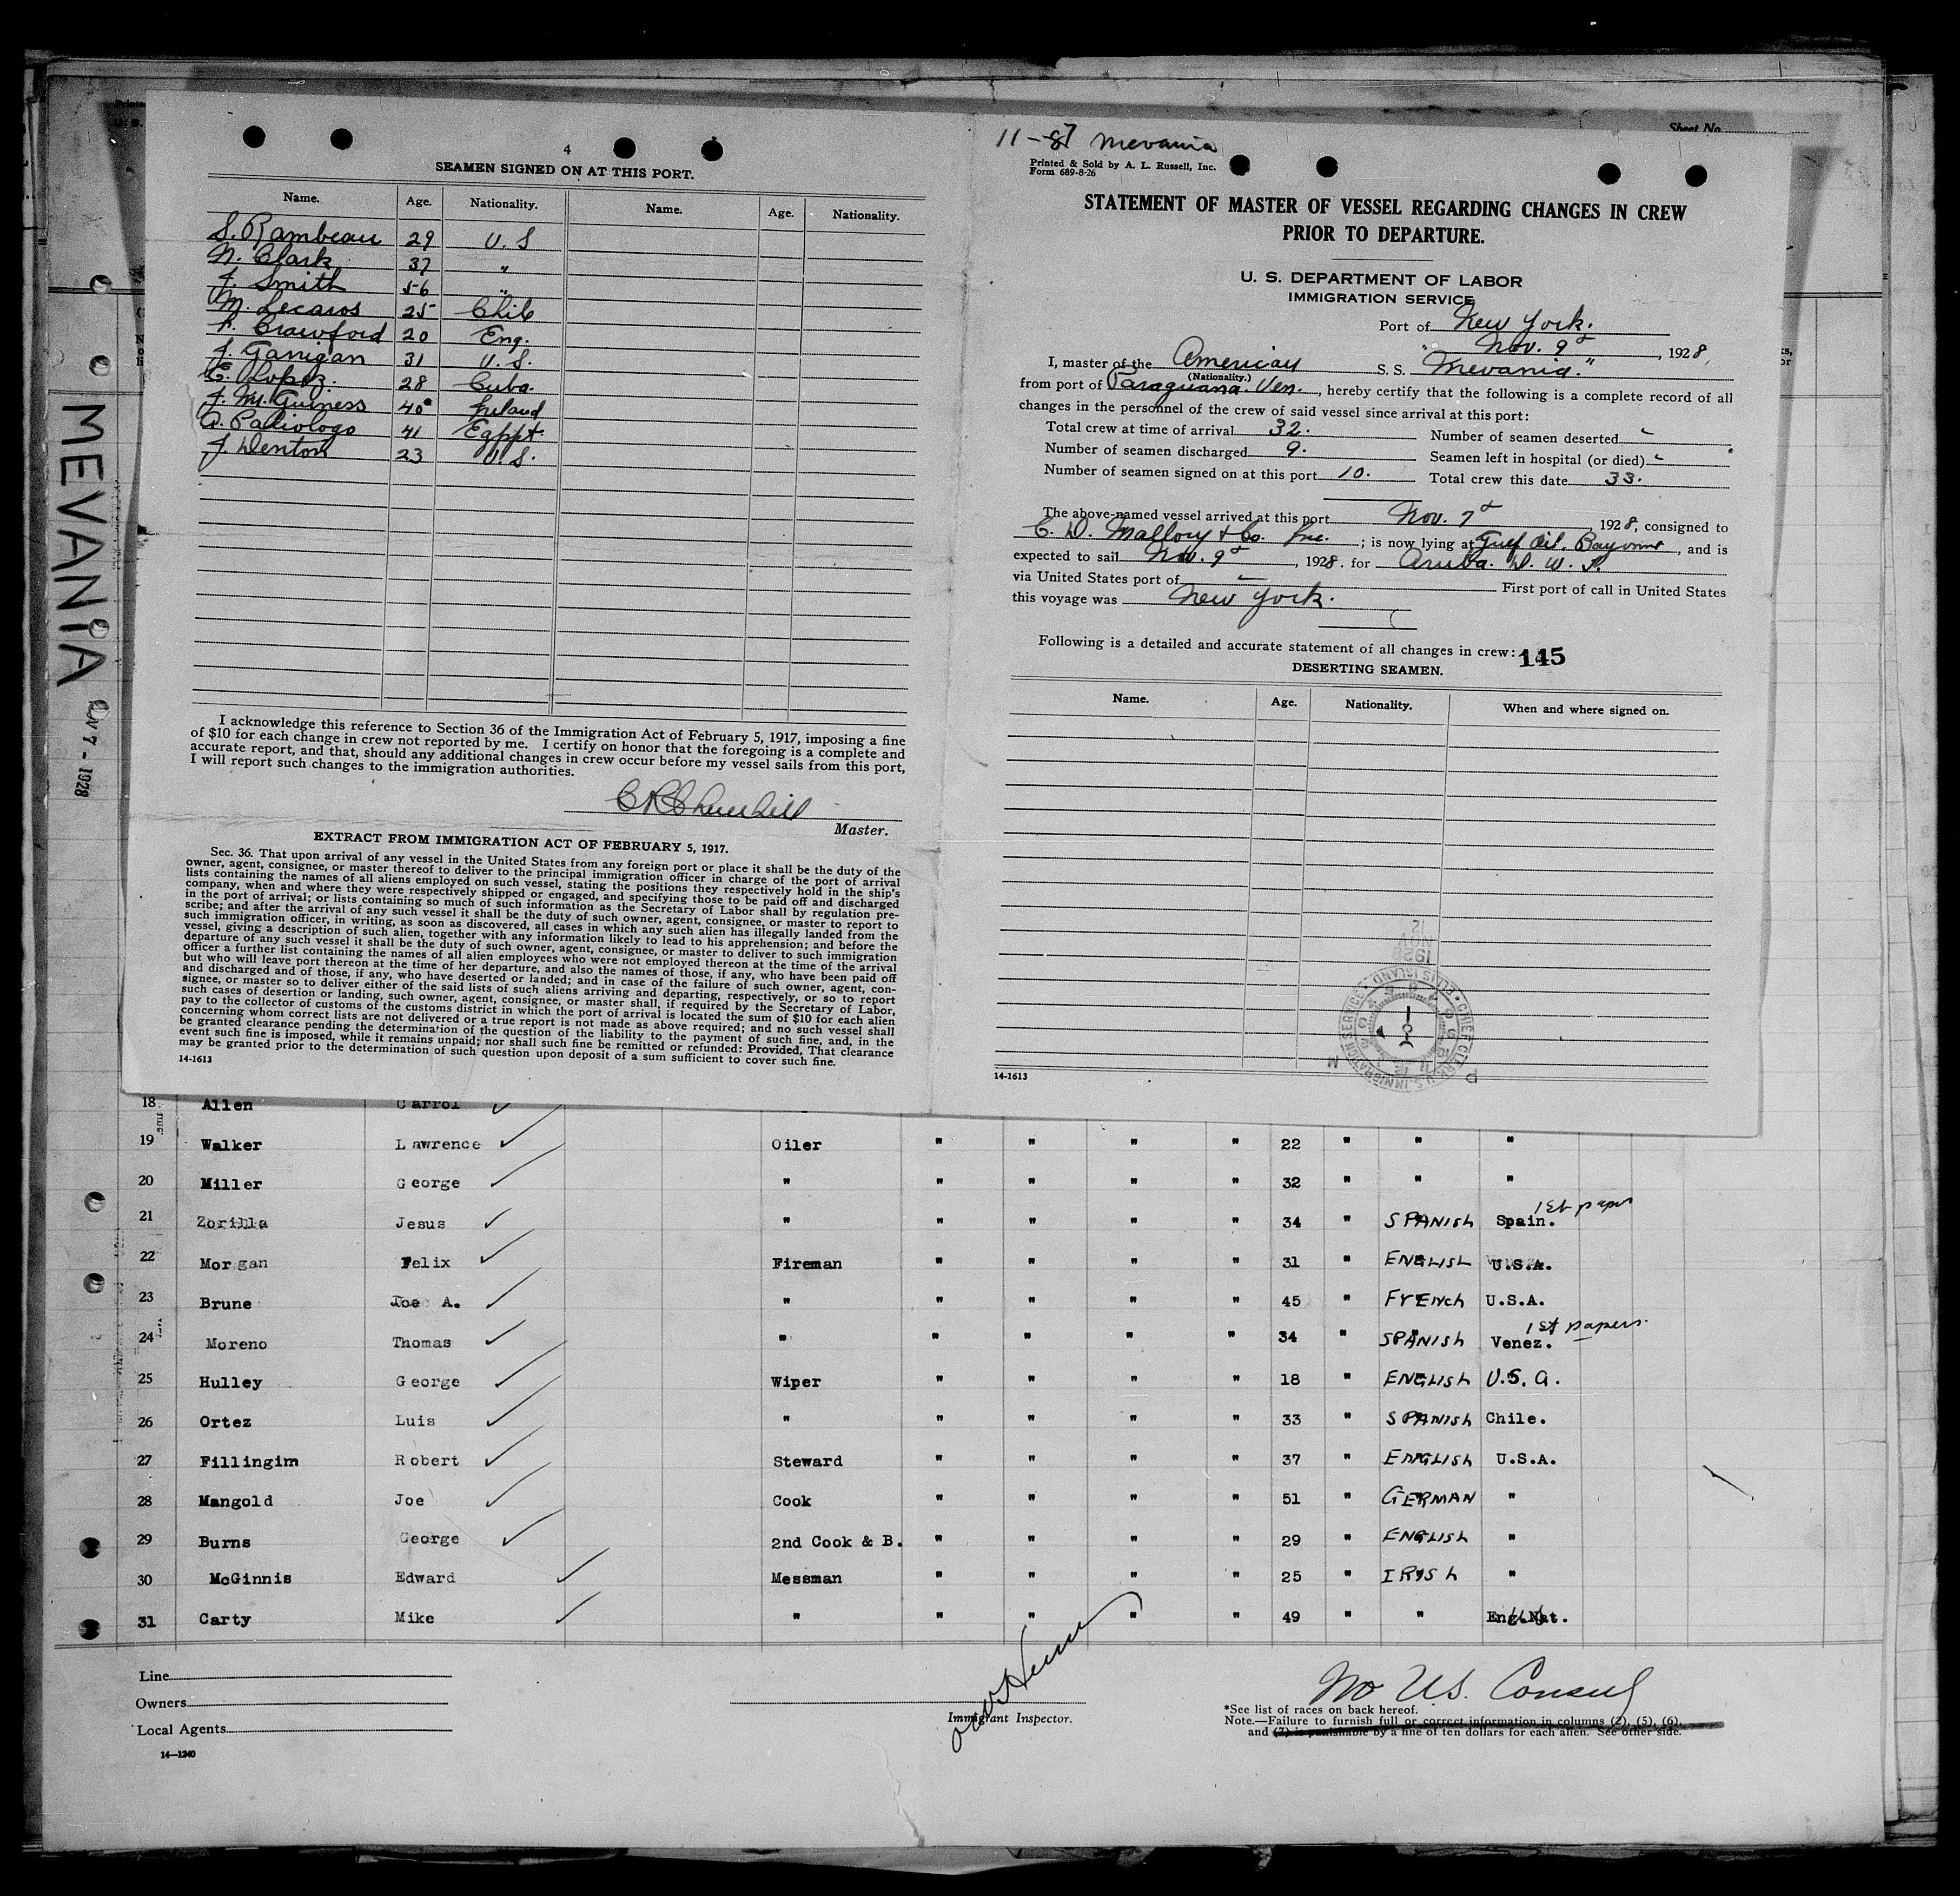 MEVANIA
NOV 7 - 1928
Sheet No.
4
SEAMEN SIGNED ON AT THIS PORT.
Name. Age. Nationality. Name. Age. Nationality.
S. Rambeau 29 U.S
N. Clark 37 "
J. Smith 56 "
M. Lecaros 25 Chile
F. Crawford 20 Eng.
J. Garrigan 31 U.S.
E. Lopez. 28 Cuba.
J. McGuiness 40 Ireland
A. Paliologo 41 Egypt.
J. Denton 23 U.S.
I acknowledge this reference to Section 36 of the Immigration Act of February 5, 1917, imposing a fine
of $10 for each change in crew not reported by me. I certify on honor that the foregoing is a complete and
accurate report, and that, should any additional changes in crew occur before my vessel sails from this port,
I will report such changes to the immigration authorities.
C R Churchill
Master.
EXTRACT FROM IMMIGRATION ACT OF FEBRUARY 5, 1917.
Sec. 36. That upon arrival of any vessel in the United States from any foreign port or place it shall be the duty of the
owner, agent, consignee, or master thereof to deliver to the principal immigration officer in charge of the port of arrival
lists containing the names of all aliens employed on such vessel, stating the positions they respectively hold in the ship's
company, when and where they were respectively shipped or engaged, and specifying those to be paid off and discharged
in the port of arrival; or lists containing so much of such information as the Secretary of Labor shall by regulation pre-
scribe; and after the arrival of any such vessel it shall be the duty of such owner, agent, consignee, or master to report to
such immigration officer, in writing, as soon as discovered, all cases in which any such alien has illegally landed from the
vessel, giving a description of such alien, together with any information likely to lead to his apprehension; and before the
departure of any such vessel it shall be the duty of such owner, agent, consignee, or master to deliver to such immigration
officer a further list containing the names of all alien employees who were not employed thereon at the time of the arrival
but who will leave port thereon at the time of her departure, and also the names of those, if any, who have been paid off
and discharged and of those, if any, who have deserted or landed; and in case of the failure of such owner, agent, con-
signee, or master so to deliver either of the said lists of such aliens arriving and departing, respectively, or so to report
such cases of desertion or landing, such owner, agent, consignee, or master shall, if required by the Secretary of Labor,
pay to the collector of customs of the customs district in which the port of arrival is located the sum of $10 for each alien
concerning whom correct lists are not delivered or a true report is not made as above required; and no such vessel shall
be granted clearance pending the determination of the question of the liability to the payment of such fine, and, in the
event such fine is imposed, while it remains unpaid; nor shall such fine be remitted or refunded: Provided, That clearance
may be granted prior to the determination of such question upon deposit of a sum sufficient to cover such fine.
14-1613
11-87 Mevania
Printed & Sold by A. L. Russell, Inc.
Form 689-8-26
STATEMENT OF MASTER OF VESSEL REGARDING CHANGES IN CREW
PRIOR TO DEPARTURE.
U. S. DEPARTMENT OF LABOR
IMMIGRATION SERVICE
Port of New York.
Nov. 9th, 1928,
I, master of the American S. S. "Mevania."
(Nationality.)
from port of Paraguana. Ven., hereby certify that the following is a complete record of all
changes in the personnel of the crew of said vessel since arrival at this port:
Total crew at time of arrival 32. Number of seamen deserted -
Number of seamen discharged 9. Seamen left in hospital (or died) -
Number of seamen signed on at this port 10. Total crew this date 33.
The above-named vessel arrived at this port Nov. 7th, 1928, consigned to
C. D. Mallory & Co. Inc.; is now lying at Gulf Oil. Bayonne, and is
expected to sail Nov. 9th, 1928. for Aruba. D. W. I.
via United States port of - First port of call in United States
this voyage was New York.
Following is a detailed and accurate statement of all changes in crew: 145
DESERTING SEAMEN.
Name. Age. Nationality. When and where signed on.
1928
NOV
12
CHIEF CLERK U.S. IMMIGRATION SERVICE · ELLIS ISLAND ·
14-1613
18 Allen Carrol
19 Walker Lawrence Oiler " " " " 22 " " "
20 Miller George " " " " " 32 " " "
21 Zorilla Jesus " " " " " 34 " SPANISH Spain. 1st paper
22 Morgan Felix Fireman " " " " 31 " ENGLISH U.S.A.
23 Brune Joe A. " " " " " 45 " FRENCH U.S.A.
24 Moreno Thomas " " " " " 34 " SPANISH Venez. 1st papers.
25 Hulley George Wiper " " " " 18 " ENGLISH U.S.A.
26 Ortez Luis " " " " " 33 " SPANISH Chile.
27 Fillingim Robert Steward " " " " 37 " ENGLISH U.S.A.
28 Mangold Joe Cook " " " " 51 " GERMAN "
29 Burns George 2nd Cook & B. " " " " 29 " ENGLISH "
30 McGinnis Edward Messman " " " " 25 " IRISH "
31 Carty Mike " " " " " 49 " " Eng. Nat.
Line
Owners
Local Agents
14-1240
Immigrant Inspector.
No U.S. Consul
*See list of races on back hereof.
Note.—Failure to furnish full or correct information in columns (2), (5), (6),
and (7) is punishable by a fine of ten dollars for each alien. See other side.